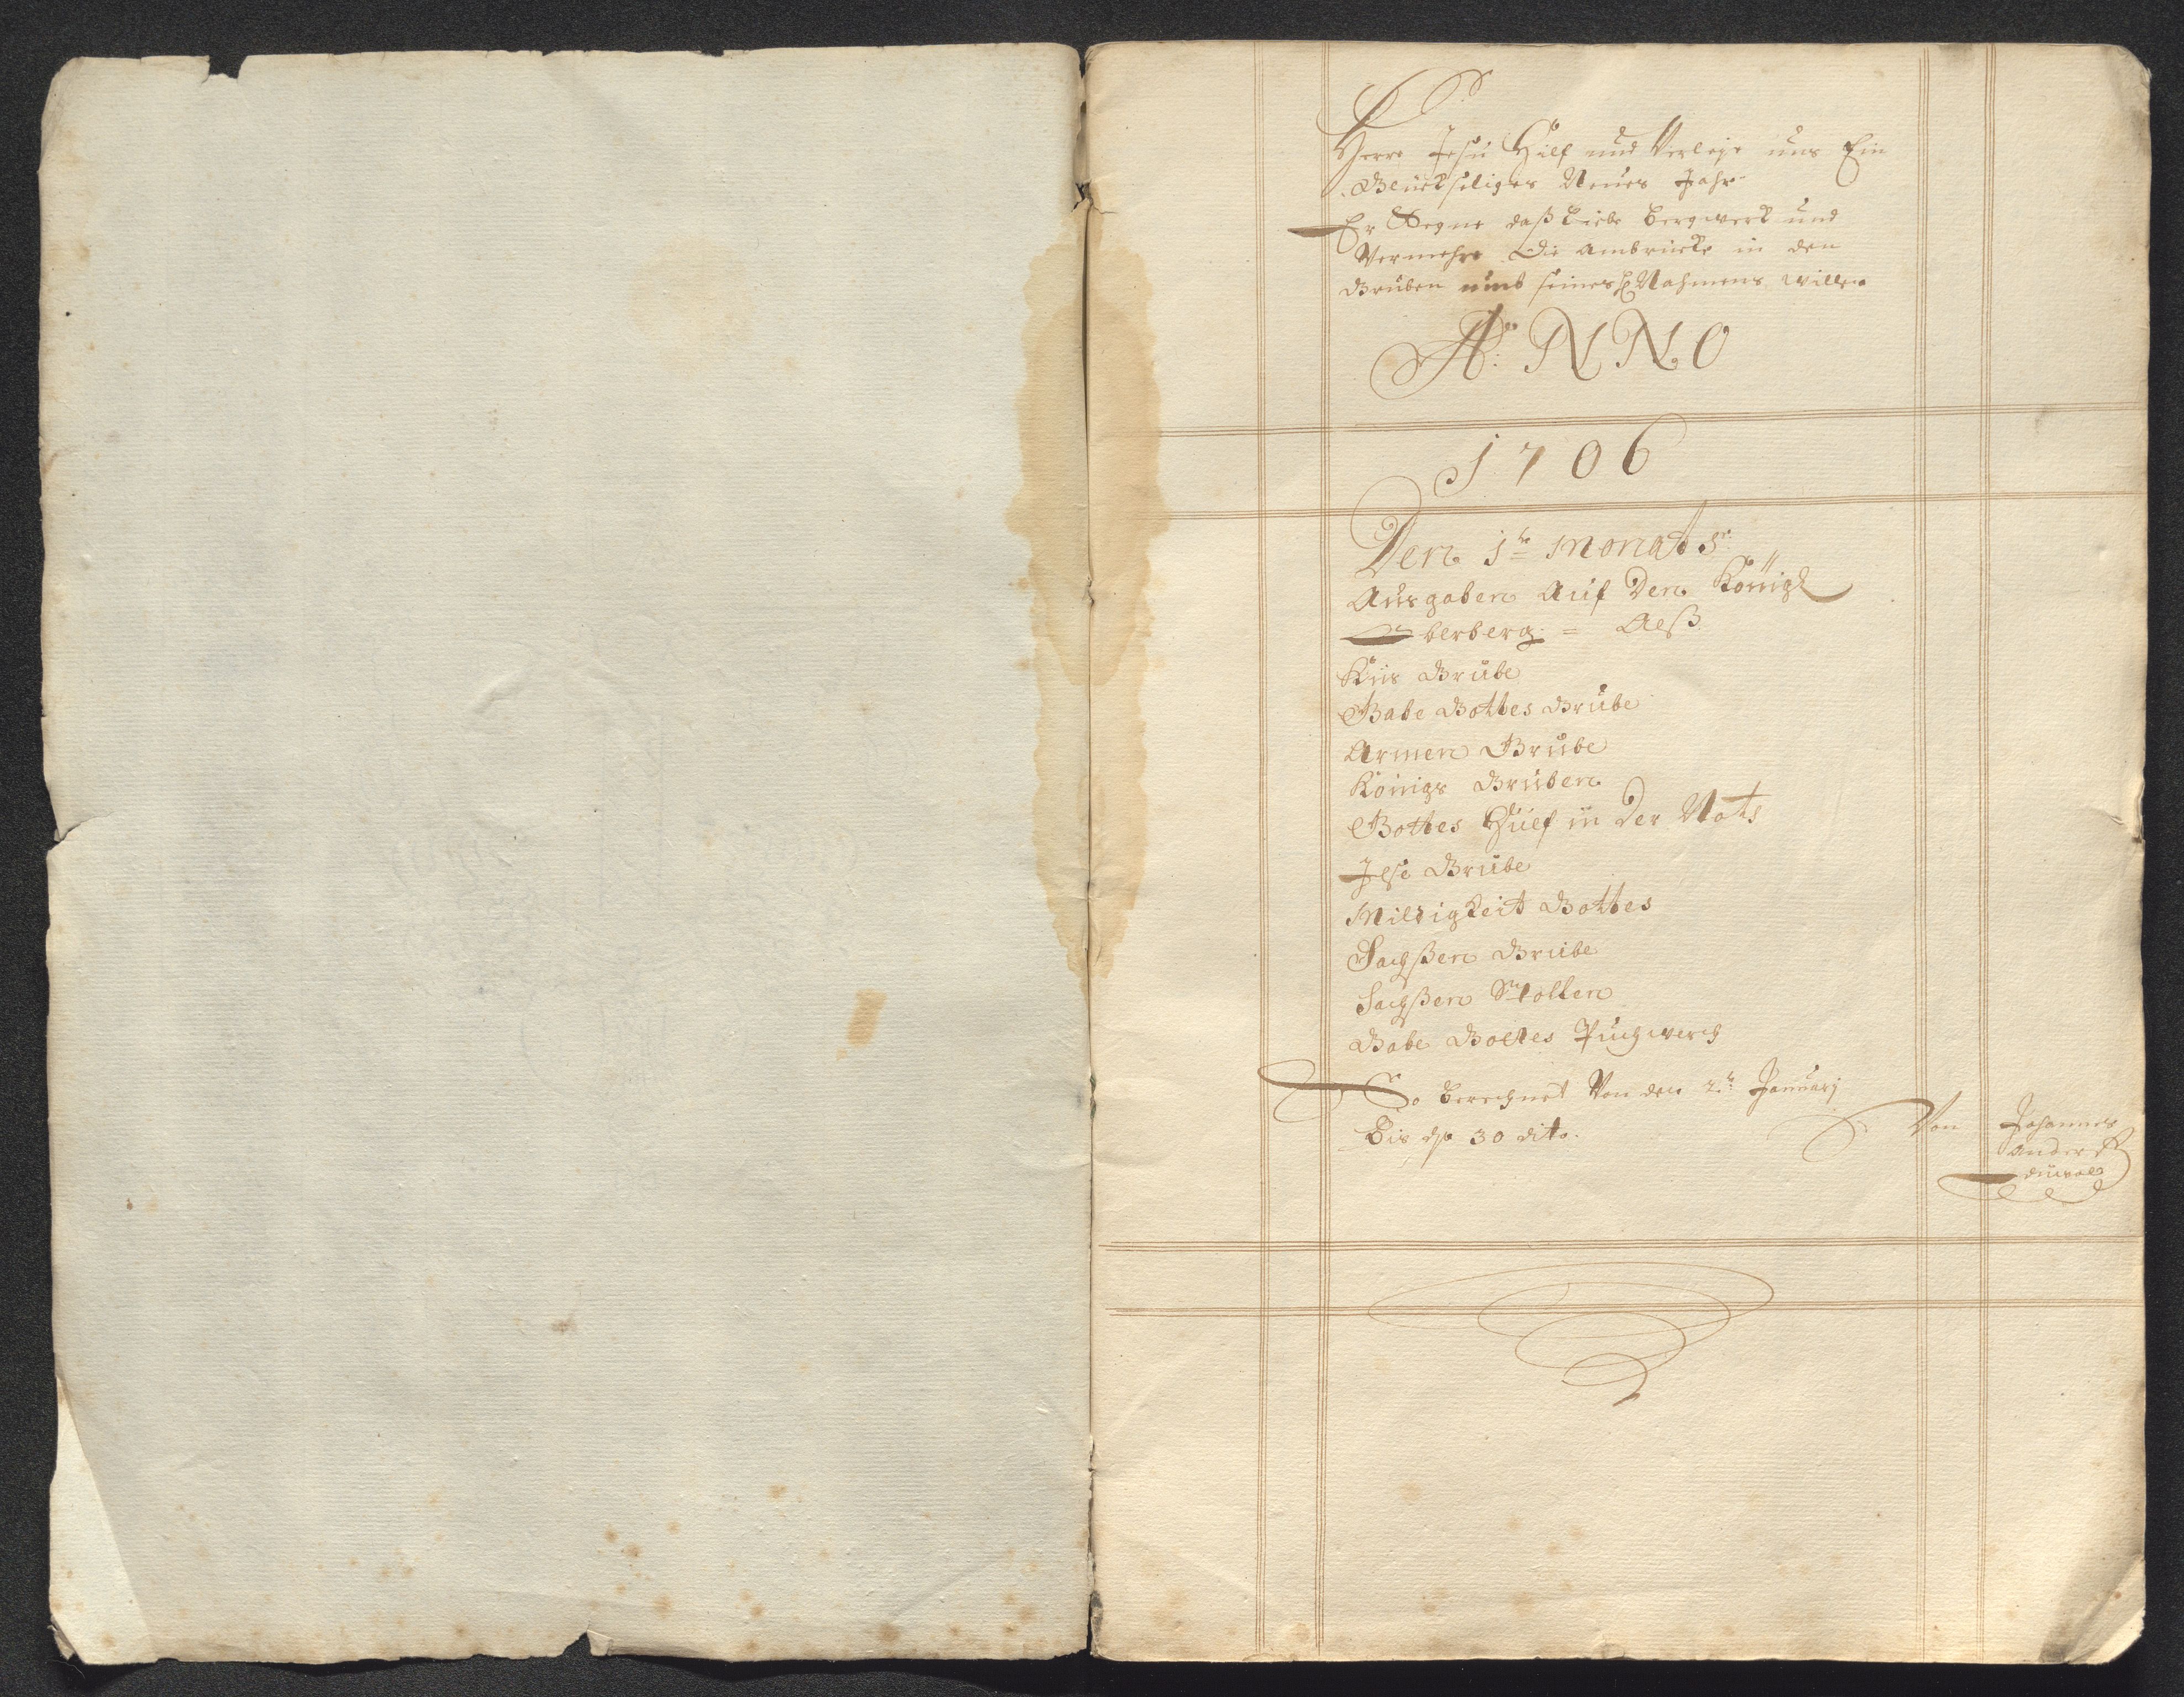 Herre Jesu Hilf und Verleÿe uns Ein
Glückseliges Neües Jahr
Er Segne daß Liebe Bergwerk und
Vermehre Die Anbrücke in den
Gruben umb seines H Nahmens willen
A: NNO
1706
Den 1te Monats
Ausgaben Auf Den Königl
berberg = Alß
Küs Grube
Gabe Gottes Grube
Armen Grube
Königs Gruben
Gottes Hülf in Der Noth
Ilse Grube
Mildigkeit Gottes
Sachßen Grube
Sachßen Stollen
Gabe Gottes Puchwerch
So Berechnet Von den 2te Januarj
Bis d 30 dito.
Von Johannes
Anders